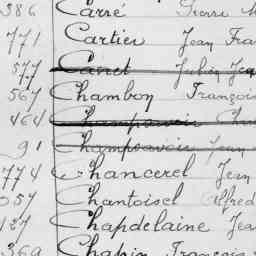 386 Carré Pierre
771 Cartier Jean Fra
577 Cairet Julien Jean
567 Chambon François
464 Champavoir
91 Champavoir Jean
774 Chancerel Jean
057 Chantoisel Alfred
127 Chapdelaine Jea
369 Chapin François